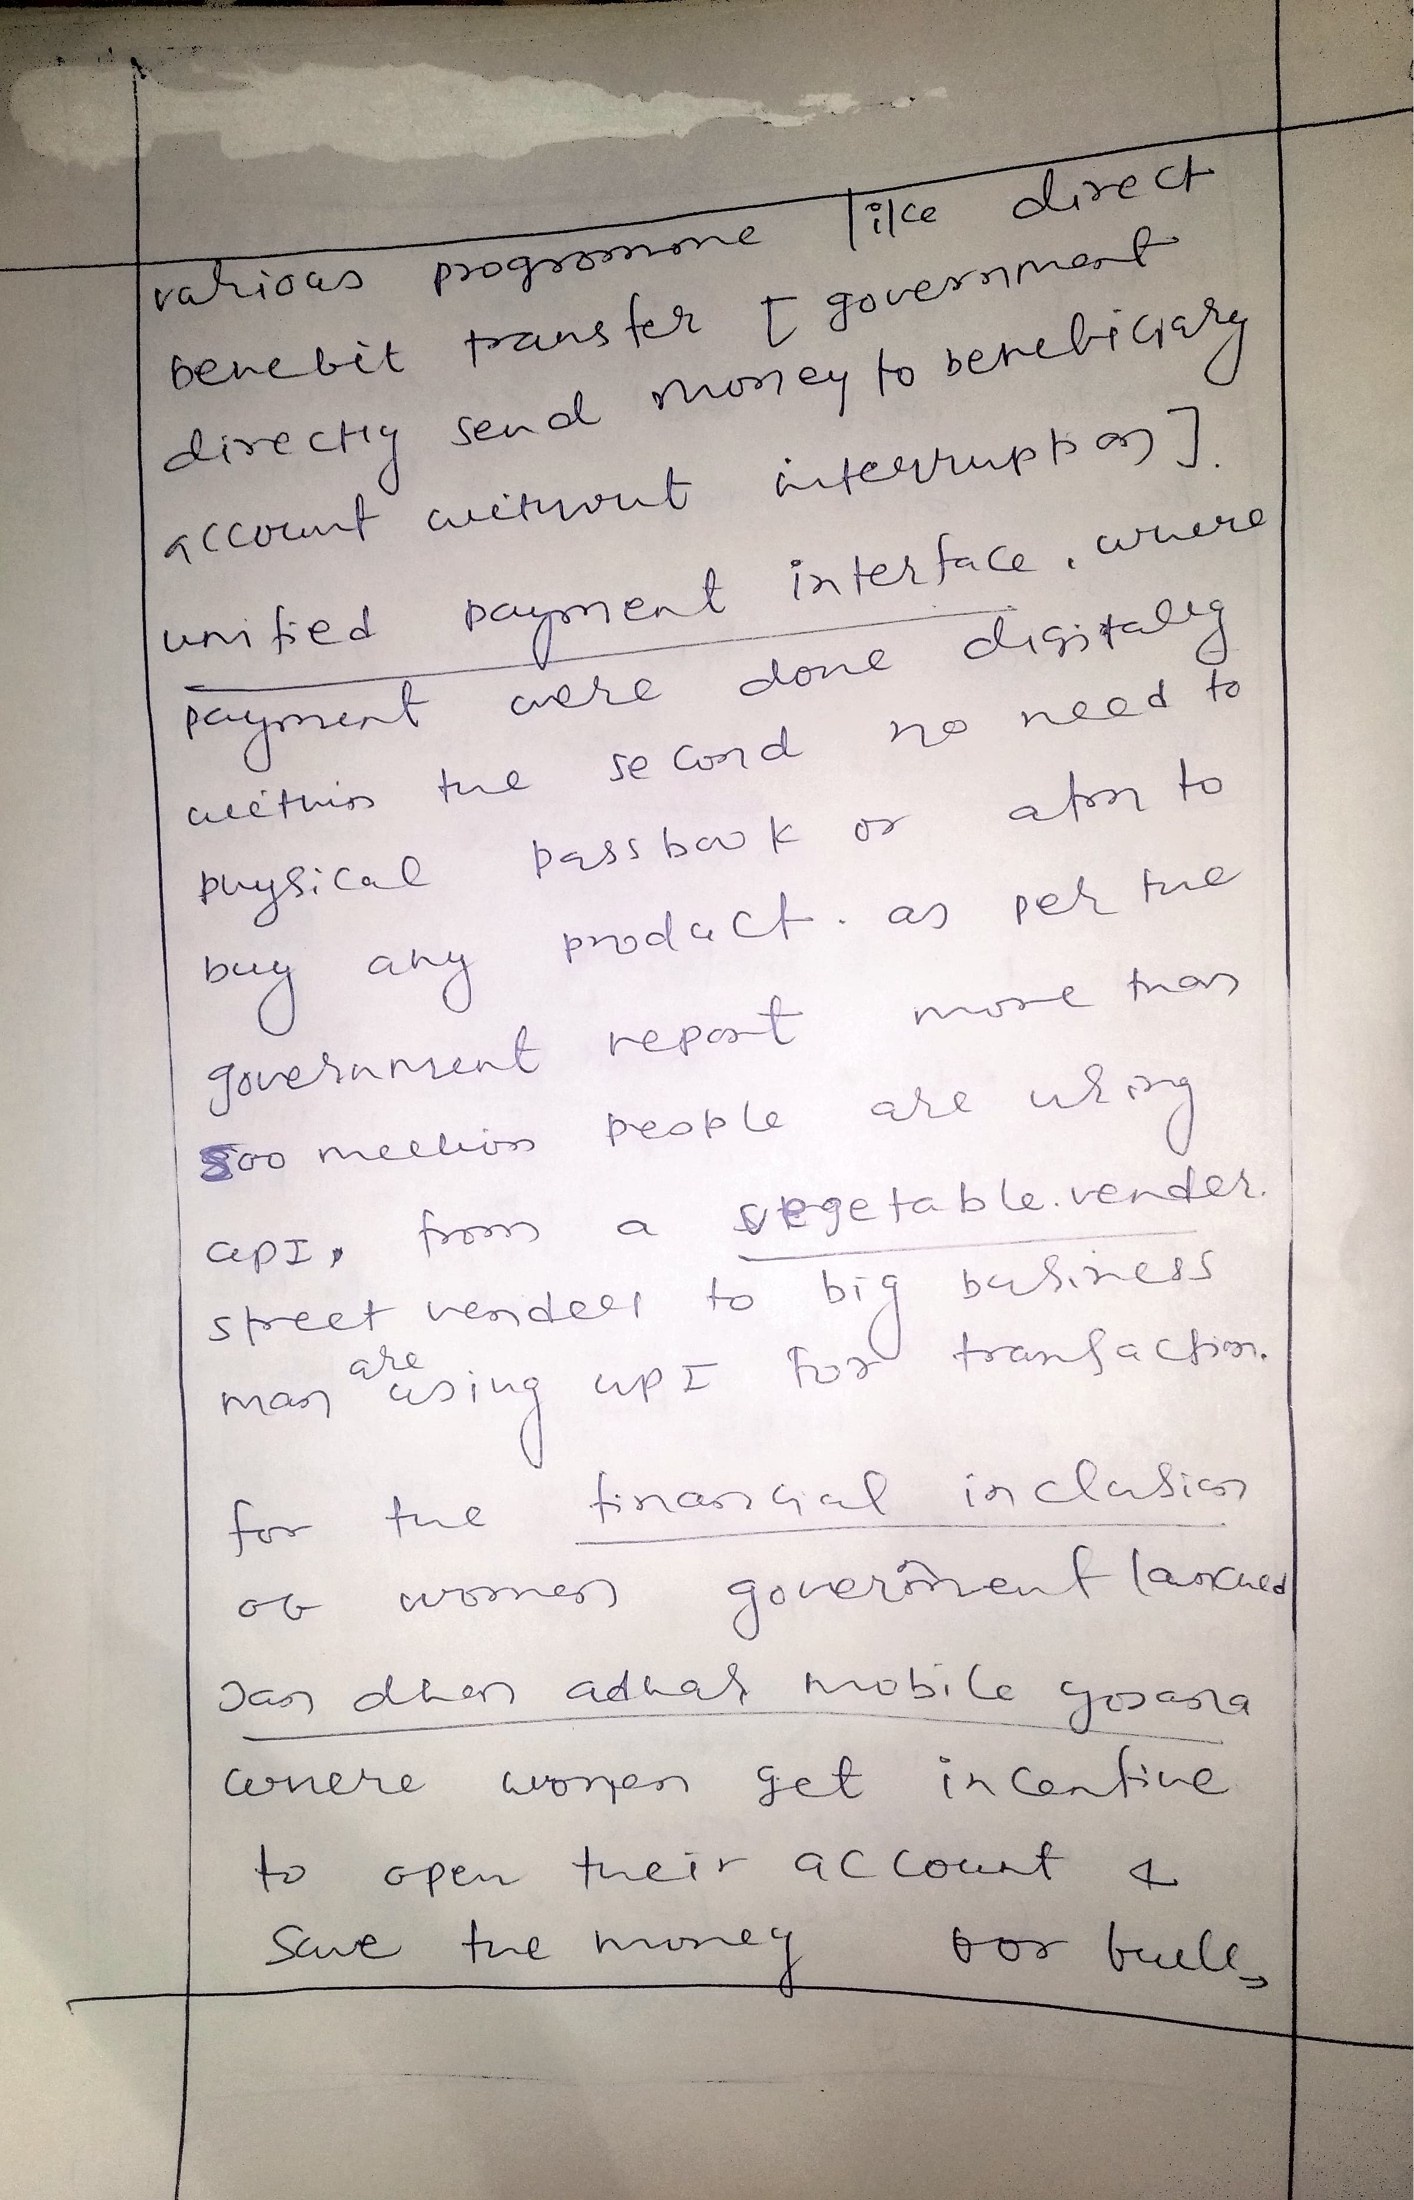 various programme like direct
benefit transfer [ government
directly send money to beneficiary
account without interruption ].
unified payment interface, where
payment were done digitally
within the second no need to
physical passbook or atm to
buy any product. as per the
government report more than
500 million people are using
upI, from a vegetable. vender.
street vendeer to big business
man are using upI for transaction.
for the financial inclusion
of women government launched
Jan dhan adhar mobile yojana
where women get incentive
to open their account &
save the money for